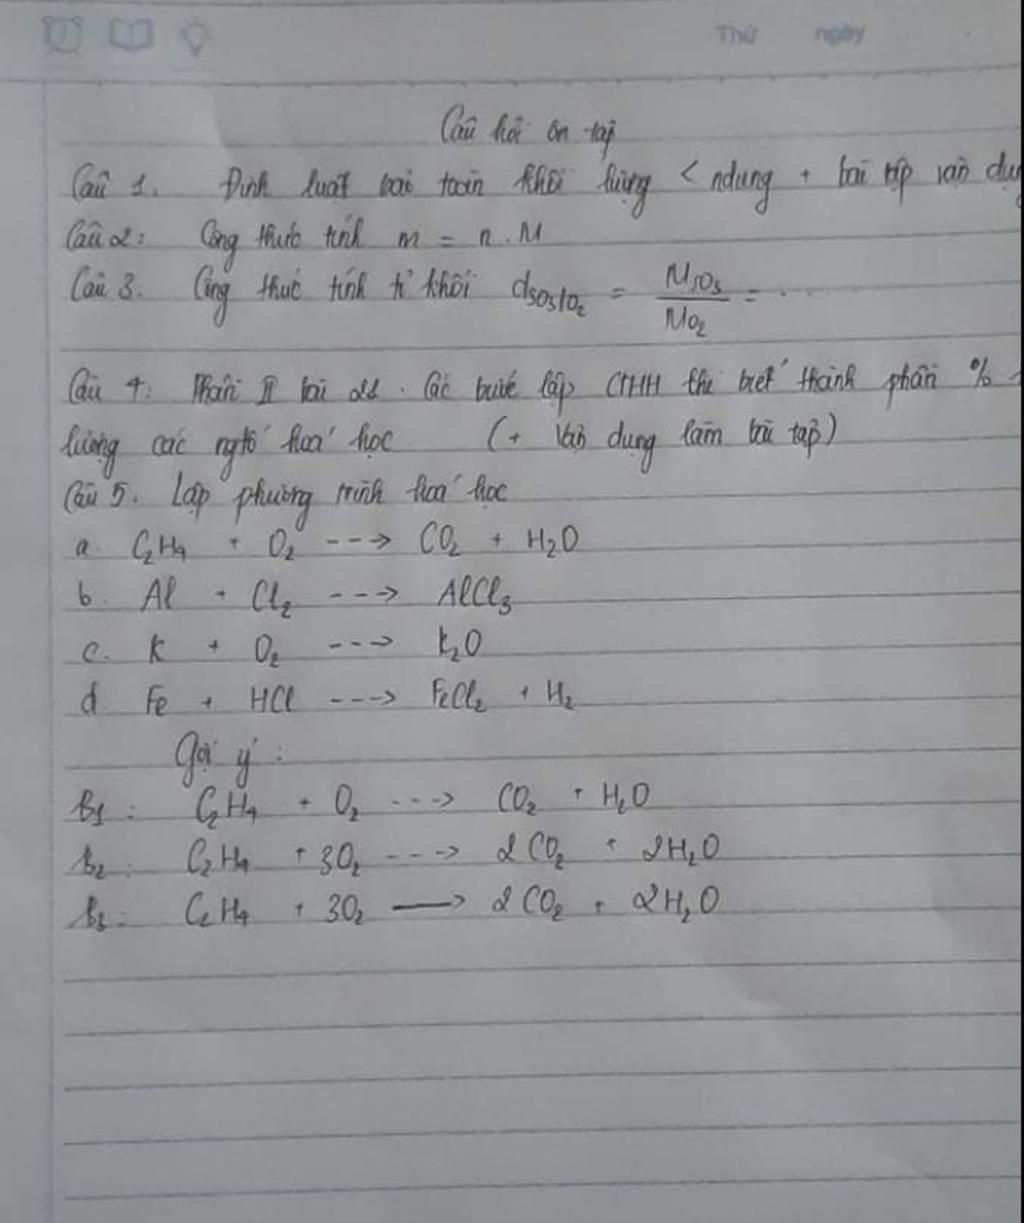 Thứ ngày
Câu hỏi ôn tập
Câu 1. Định luật bảo toàn khối lượng < ndung + bài tập vận dụng
Câu 2: Công thức tính m = n.M
Câu 3. Công thức tính tỉ khối dSO₃/O₂ = MSO₃/MO₂ = ...
Câu 4: Phần II bài 21. Các bước lập CTHH khi biết thành phần %
lượng các ngtố hoá học (+ Vận dụng làm bài tập)
Câu 5. Lập phương trình hoá học
a. C₂H₄ + O₂ ---> CO₂ + H₂O
b. Al + Cl₂ ---> AlCl₃
c. K + O₂ ---> K₂O
d Fe + HCl ---> FeCl₂ + H₂
Gợi ý:
B1: C₂H₄ + O₂ ---> CO₂ + H₂O
B2: C₂H₄ + 3O₂ ---> 2CO₂ + 2H₂O
B3: C₂H₄ + 3O₂ —> 2CO₂ + 2H₂O